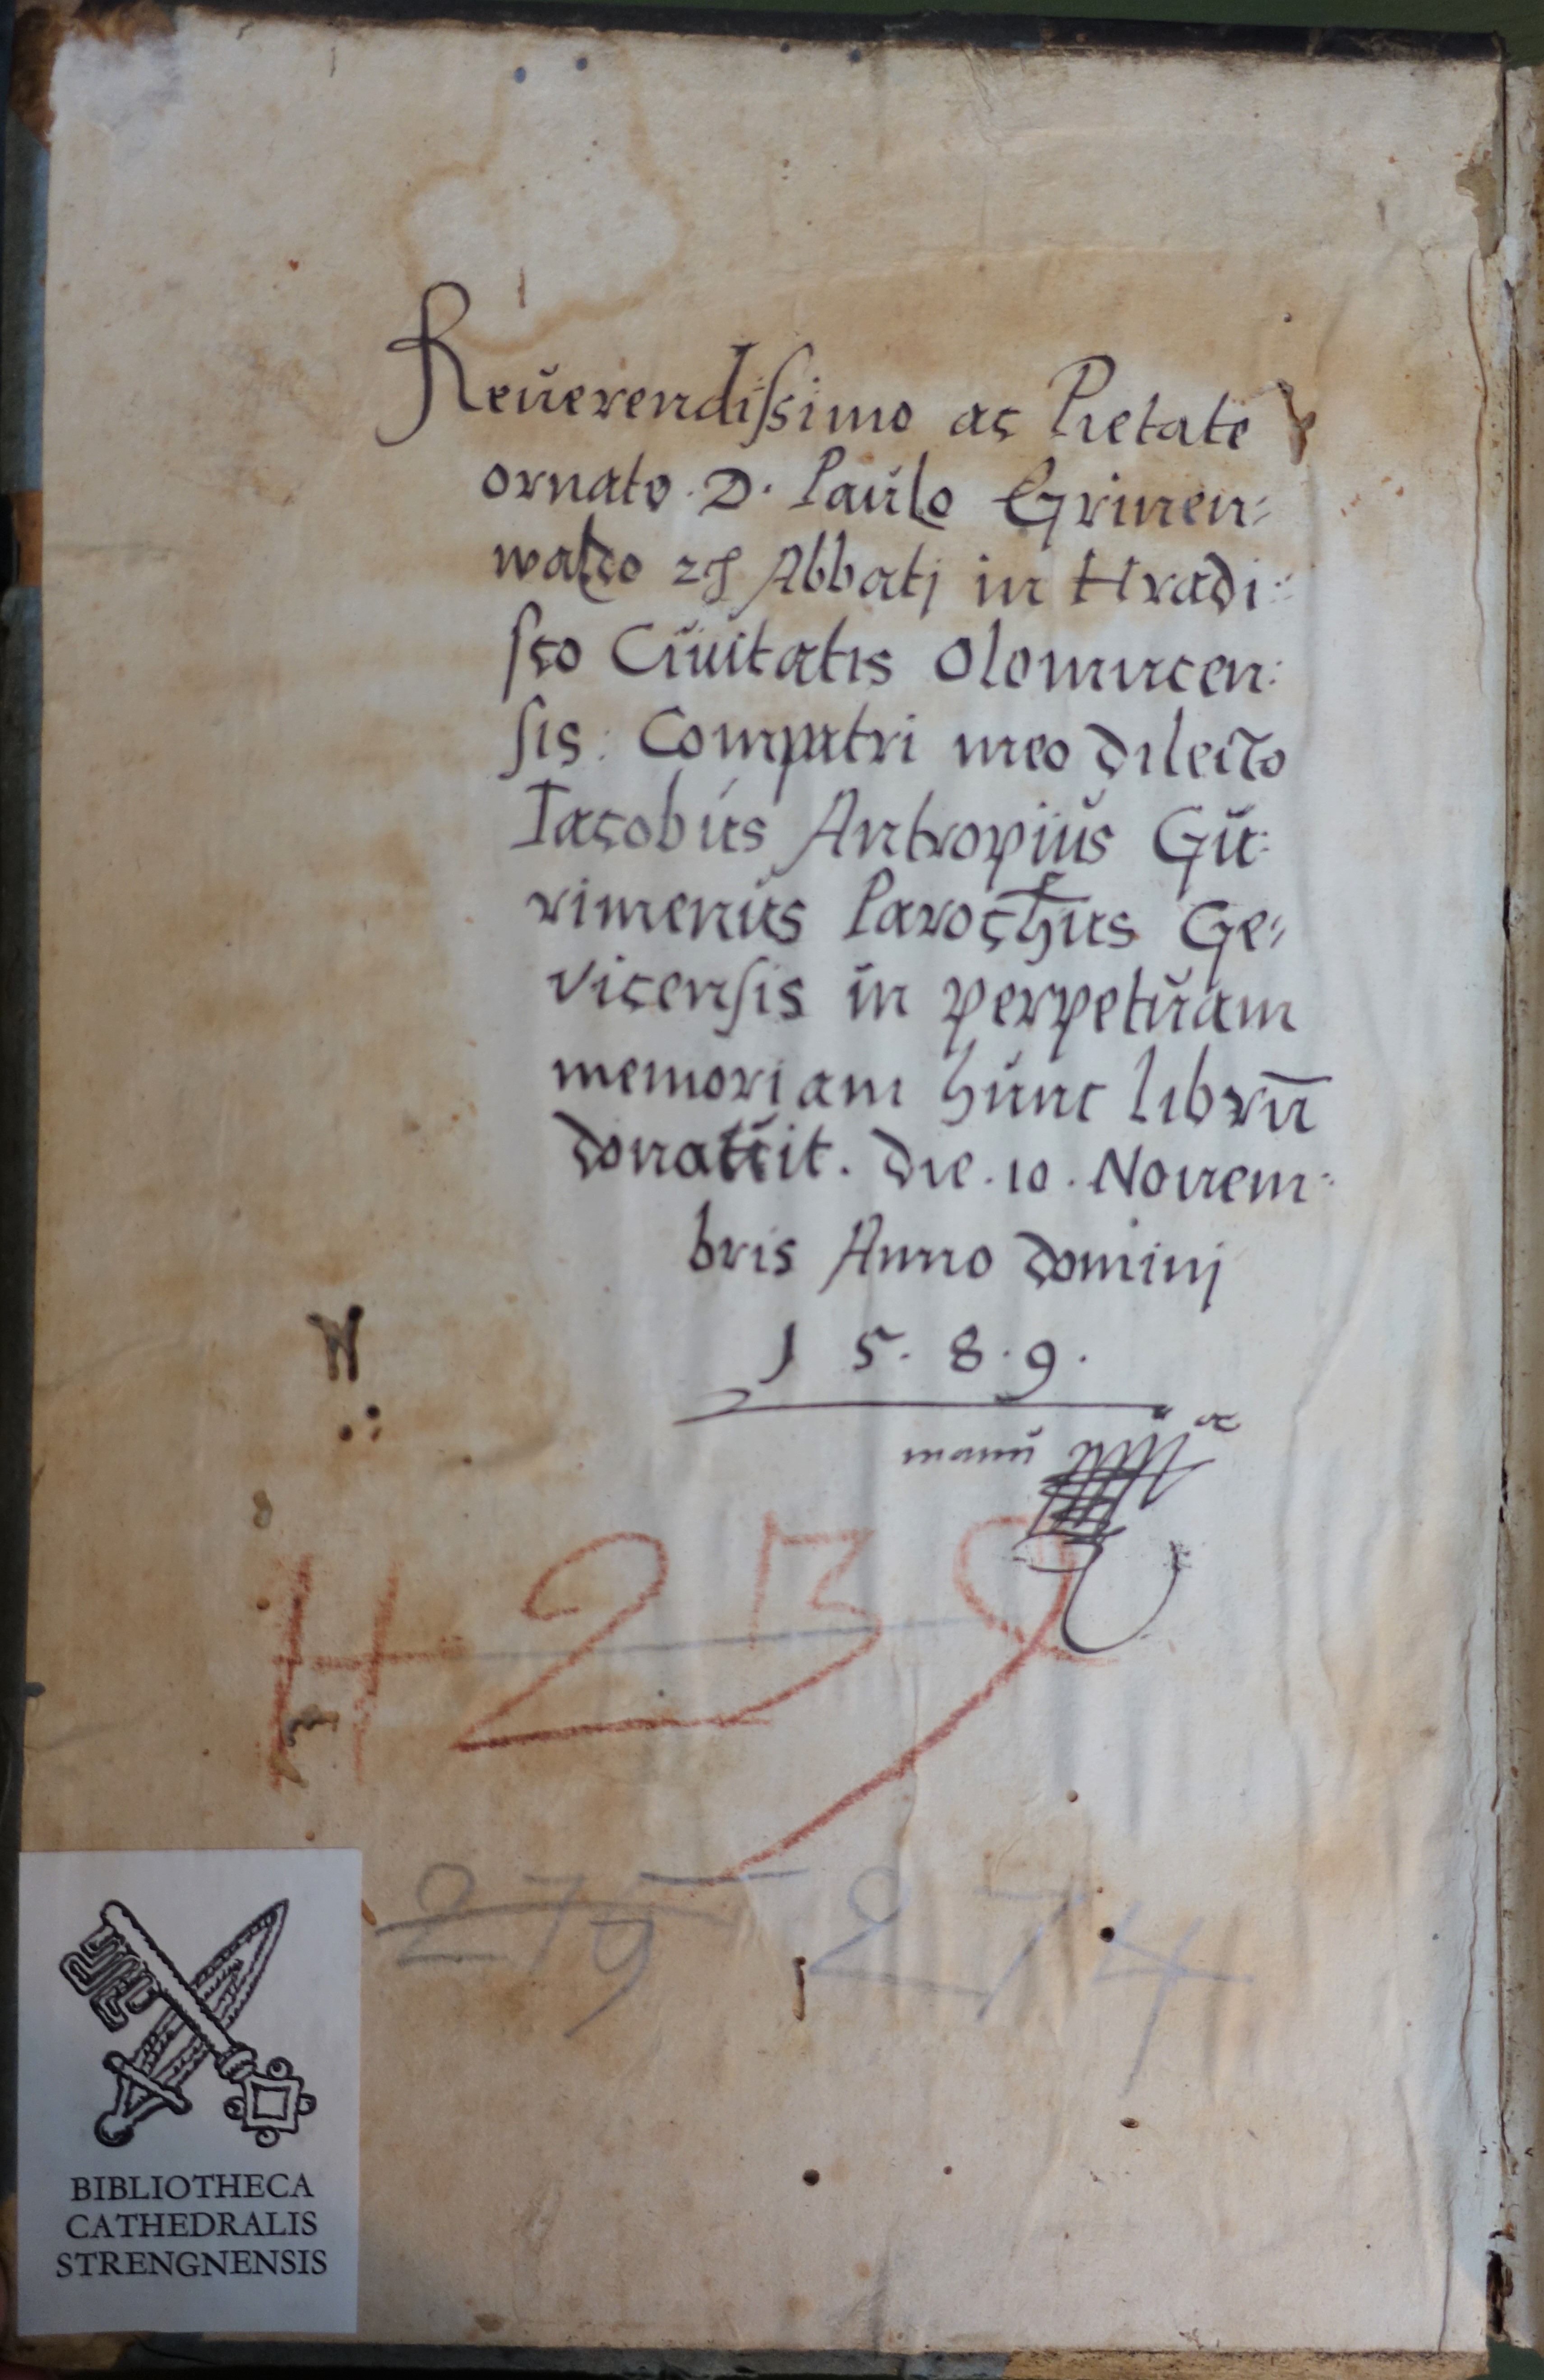 Reuerendissimo ac Pietate
ornato. D. Paulo Grinen:
waldo Abbatj in Hradi:
sco Ciuitatis Olomucen:
sis: Compatri meo dilecto
Iacobus Antropius Gu:
rimenus Parochus Ge:
vicensis in perpetuam
memoriam hunc librū
donauit. Die. 10. Nouem:
bris Anno dominj
1 5. 8. 9.
manu
H 259
275 274
BIBLIOTHECA
CATHEDRALIS
STRENGNENSIS